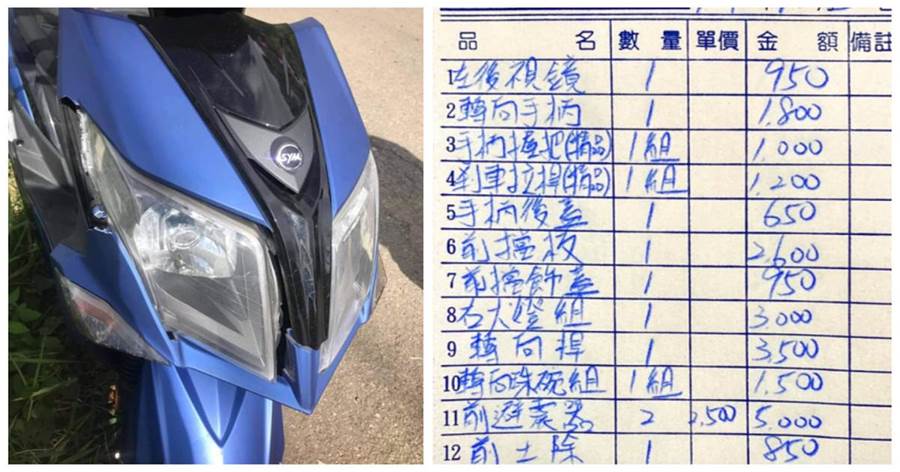 SYM
品 名 數 量 單價 金 額 備註
1 左後視鏡 1 950
2 轉向手柄 1 1.800
3 手柄握把(精品) 1組 1.000
4 刹車拉桿(精品) 1組 1.200
5 手柄後蓋 1 650
6 前擋板 1 2.600
7 前擋飾蓋 1 950
8 右大燈組 1 3.000
9 轉向桿 1 3.500
10 轉向珠碗組 1組 1.500
11 前避震器 2 2,500 5.000
12 前土除 1 850